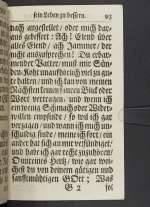 sein Leben zu bessern. 93
nach angestellet / oder mich dar-
durch gebessert: Ach! Elend über
alles Elend / ach Jammer / der
nicht auszusprechen! Du erbar-
mender Vatter / must mit Sün-
den-Koht unaufhörlich voll
halten / und ich kan von meinem
Nächsten keinen Blick oder
Wort vertragen / und wenn ich
ein wenig Schmach oder Wider-
willen empfinde / so wil ich gar
vergehen / und wann ich mich un-
schuldig finde / meine ich / ein
ander hat sich an mir versündiget /
und habe ich gar recht zu zürnen /
O unreines Hertz / wie gar weit
bist du von deinem gütigen und
sanfftmüthigen GOtt; Was
G 2 sol